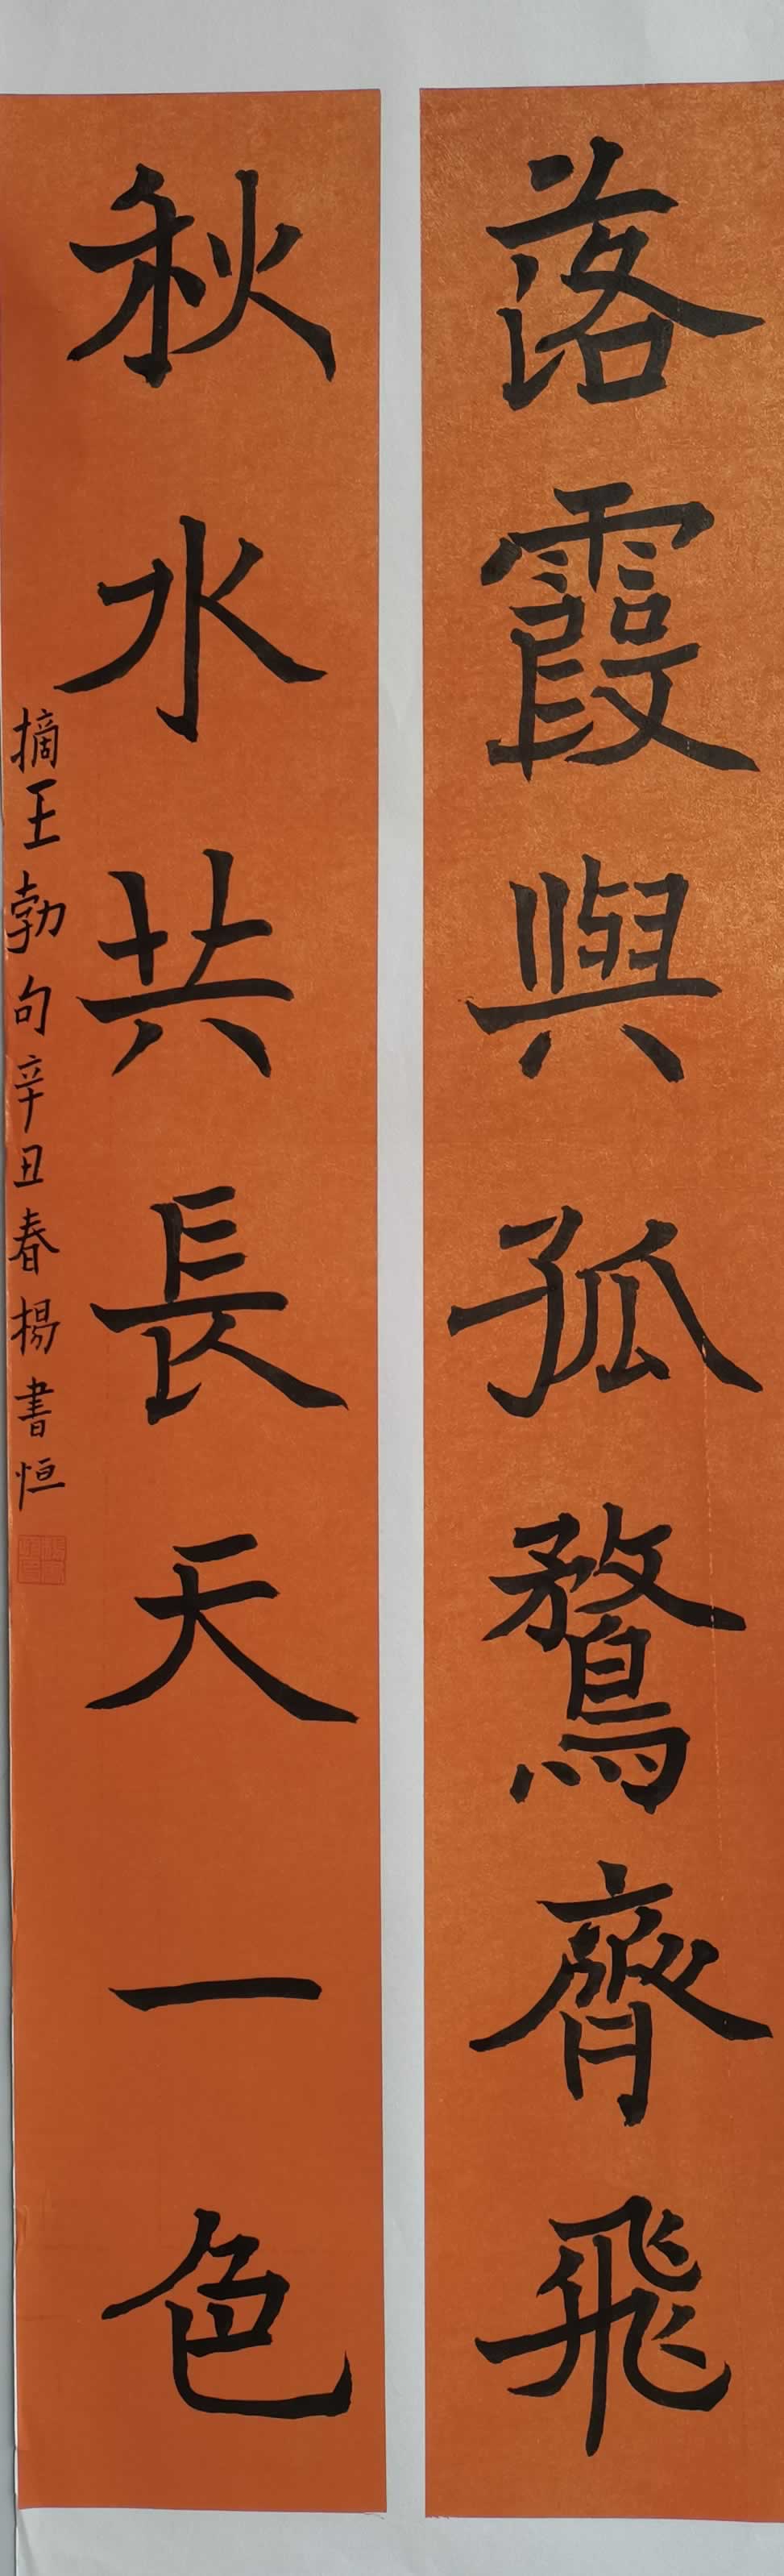 落霞與孤鶩齊飛
秋水共長天一色
摘王勃句辛丑春楊書恒